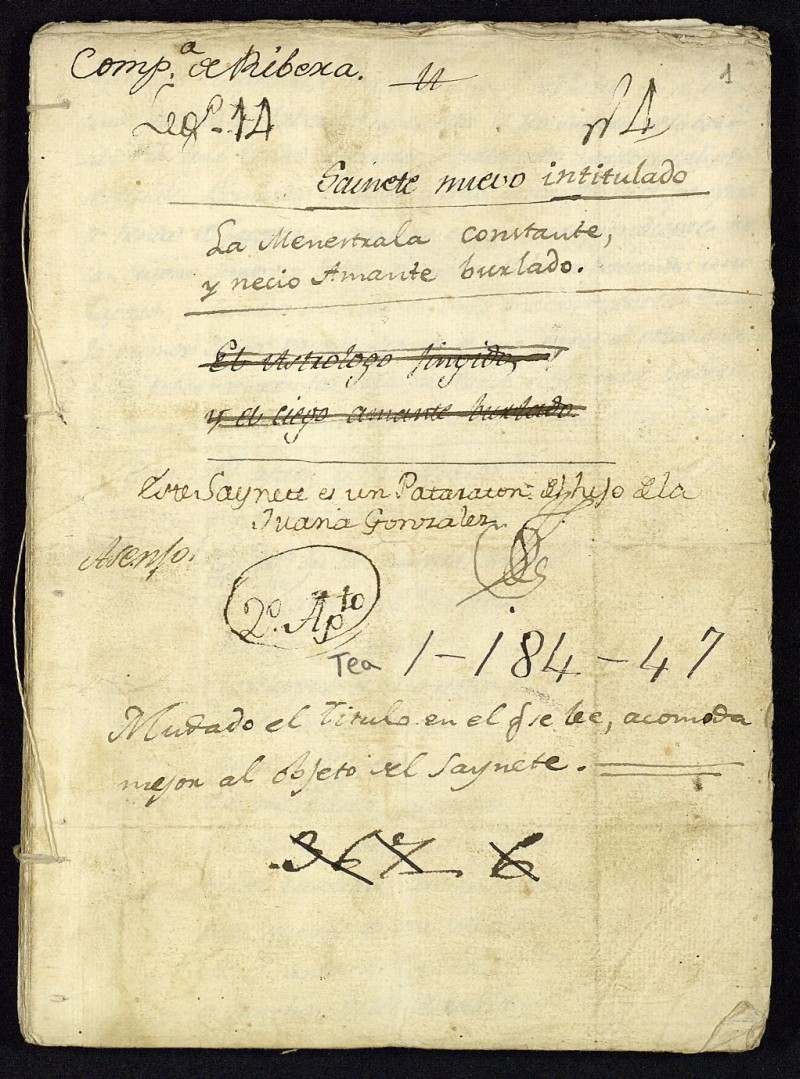 Comp.ª de Ribera.
1
Leg.º 14
nº 4
Sainete nuevo intitulado
La Menestrala constante,
y necio Amante burlado.
El Astrologo fingido,
y el ciego amante burlado.
Este Saynete es un Pataraton del hijo de la
Juana Gonzalez.
Asenso.
2º. Apto
Tea 1-184-47
Mudado el Titulo en el q se lee, acomoda
mejor al objeto del Saynete.
367 6